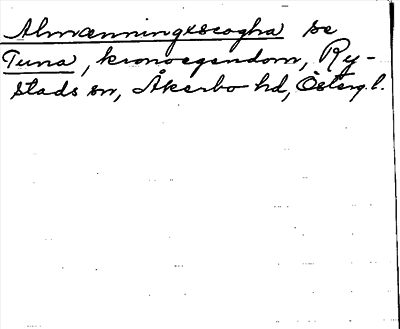 Almænningxscogha se
Tuna, kronoegendom, Ry-
stads sn, Åkerbo hd, Österg.l.